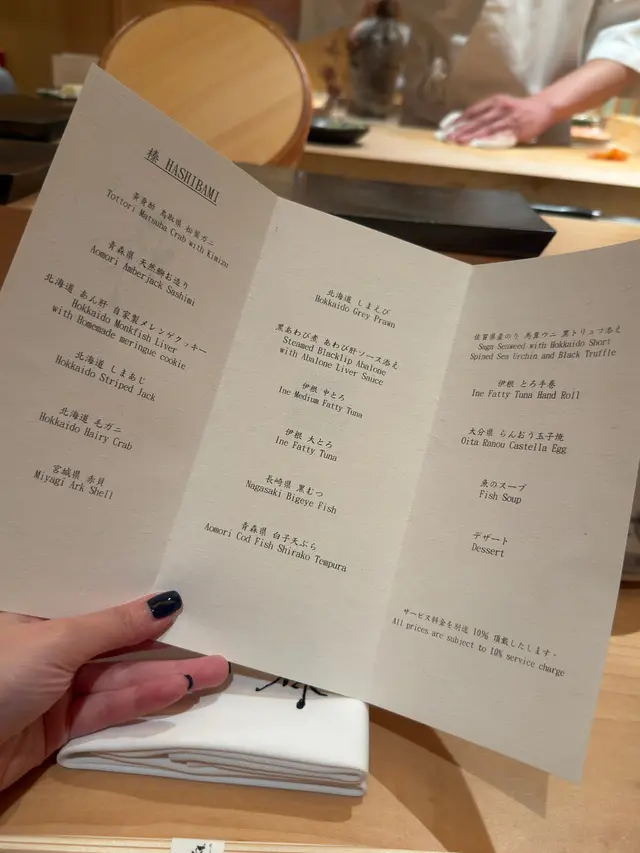 榛 HASHIBAMI
喜寿酢 鳥取県 松葉ガニ
Tottori Matsuba Crab with Kimizu
青森県 天然鰤お造り
Aomori Amberjack Sashimi
北海道 あん肝 自家製メレンゲクッキー
Hokkaido Monkfish Liver
with Homemade meringue cookie
北海道 しまあじ
Hokkaido Striped Jack
北海道 毛ガニ
Hokkaido Hairy Crab
宮城県 赤貝
Miyagi Ark Shell
北海道 しまえび
Hokkaido Grey Prawn
黒あわび煮 あわび肝ソース添え
Steamed Blacklip Abalone
with Abalone Liver Sauce
伊根 中とろ
Ine Medium Fatty Tuna
伊根 大とろ
Ine Fatty Tuna
長崎県 黒むつ
Nagasaki Bigeye Fish
青森県 白子天ぷら
Aomori Cod Fish Shirako Tempura
佐賀県産のり 馬糞ウニ 黒トリュフ添え
Saga Seaweed with Hokkaido Short
Spined Sea Urchin and Black Truffle
伊根 とろ手巻
Ine Fatty Tuna Hand Roll
大分県 らんおう玉子焼
Oita Ranou Castella Egg
魚のスープ
Fish Soup
デザート
Dessert
サービス料金を別途 10% 頂戴したします。
All prices are subject to 10% service charge